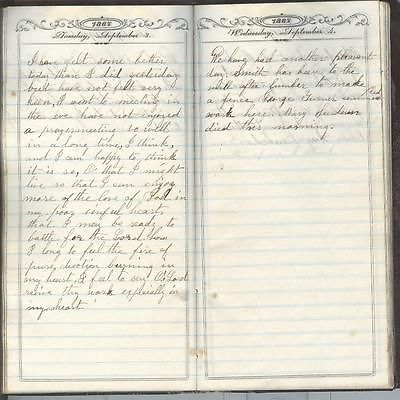 1862
Tuesday, September 3.
I have felt some better
today than I did yesterday
but have not felt very
keen, I went to meeting in
the eve have not enjoyed
a prayer meeting so well
in a long time, I think,
and I am happy to think
it is so, O that I might
live so that I can enjoy
more of the love of God in
my poor sinful heart,
that I may be ready to
battle for the Lord. How
I long to feel the fire of
pure devotion burning in
my heart, I feel to say O Lord
revive thy work especially in
my heart
Wednesday, September 4.
We have had another pleasant
day, Smith has been to the
mill after lumber to make
a fence. George Turner
work here. Mary
died this morning.